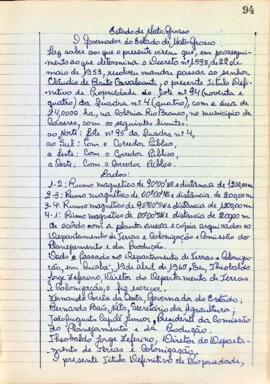 94
Estado de Mato Grosso
O Governador do Estado de Mato Grosso
Faz saber aos que o presente virem que, em prosegui-
mento ao que determina o Decreto nº 1598, de 22 de
maio de 1953, resolveu mandar passar ao senhor
Cláudio de Brito Cavalcanti, o presente Titulo Defi-
nitivo de Propriedade do lote nº 94 (noventa e
quatro) da Quadra nº 4 (quatro), com a área de
24,0000 ha, na Colônia Rio Branco, no município de
Cáceres, com os seguintes limites:
ao Norte: Lote nº 95 da Quadra nº 4,
ao Sul: Com o Corredor Público,
a Leste: Com o Corredor Público,
a Oeste: Com o Corredor Público.
Lados:
1-2: Rumo magnético de e distância de 1.200,00m
2-3: Rumo magnético de e distância de 200,00m
3-4: Rumo magnético de e distância de 1.200,00m
4-1: Rumo magnético de e distância de 200,00m
de acordo com a planta anexa e cópia arquivados no
Departamento de Terras e Colonização e Comissão do
Planejamento e da Produção.
Dado e passado no Departamento de Terras e Coloniza-
ção, em Cuiabá, de abril de 1965, Eu, Theobaldo
Jorge Leferino, Diretor do Departamento de Terras
e Colonização, o fiz escrever.
Fernando Corrêa da Costa, Governador do Estado;
Bernardo Bais, Neto, Secretário da Agricultura;
João Augusto Capilé Junior, Presidente da Comissão
do Planejamento e da Produção.
Theobaldo Jorge Leferino, Diretor do Departa-
mento de Terras e Colonização.
O presente Titulo Definitivo de Propriedade,